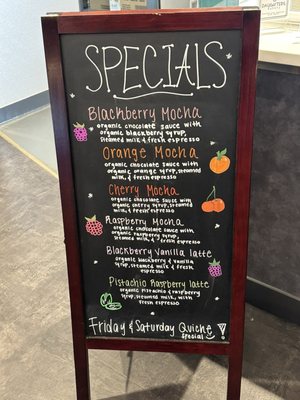 SPECIALS
Blackberry Mocha
organic chocolate sauce with
organic blackberry syrup,
steamed milk, & fresh espresso
Orange Mocha
organic chocolate sauce with
organic orange syrup, steamed
milk, & fresh espresso
Cherry Mocha
organic chocolate sauce with
organic cherry syrup, steamed
milk, & fresh espresso
Raspberry Mocha
organic chocolate sauce with
organic raspberry syrup,
steamed milk, & fresh espresso
Blackberry Vanilla latte
organic blackberry & vanilla
syrup, steamed milk & fresh
espresso
Pistachio Raspberry latte
organic pistachio & raspberry
syrup, steamed milk, with
fresh espresso
Friday & Saturday Quiche !
special